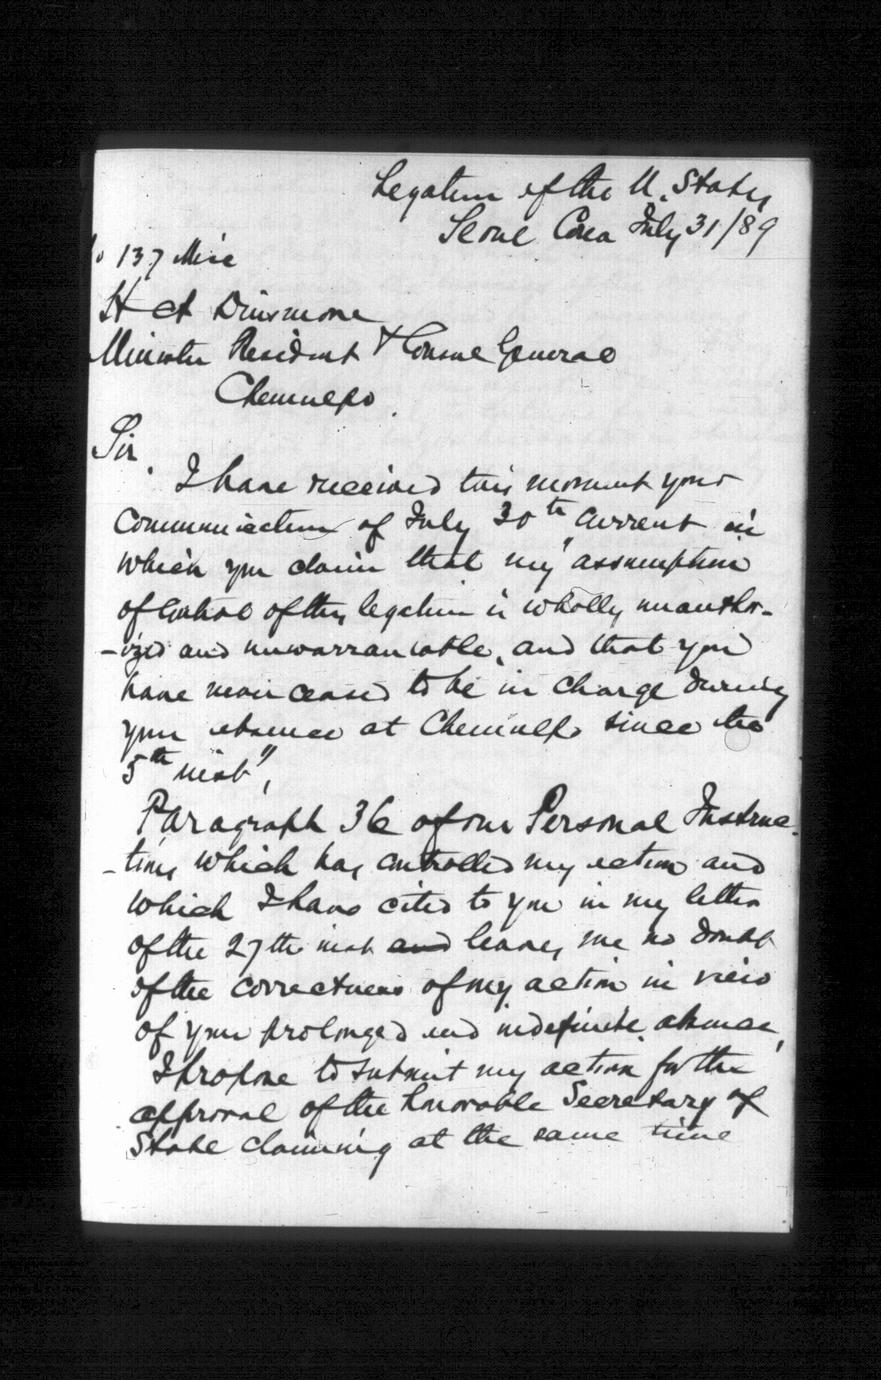 Legation of the U. States
Seoul Corea July 31/89
No 137 Misc
H A Dinsmore
Minister Resident & Consul General
Chemulpo.
Sir.
I have received this moment your
communication of July 30th current in
which you claim that my "assumption
of control of this legation is wholly unauthor-
-ized and unwarrantable, and that you
have never ceased to be in charge during
your absence at Chemulpo since the
5th inst",
Paragraph 36 of our Personal Instruc-
-tions which has controlled my action and
which I have cited to you in my letter
of the 27th inst and leaves me no doubt
of the correctness of my action in view
of your prolonged and indefinite absence,
I propose to submit my action for the
approval of the honorable Secretary of
State claiming at the same time